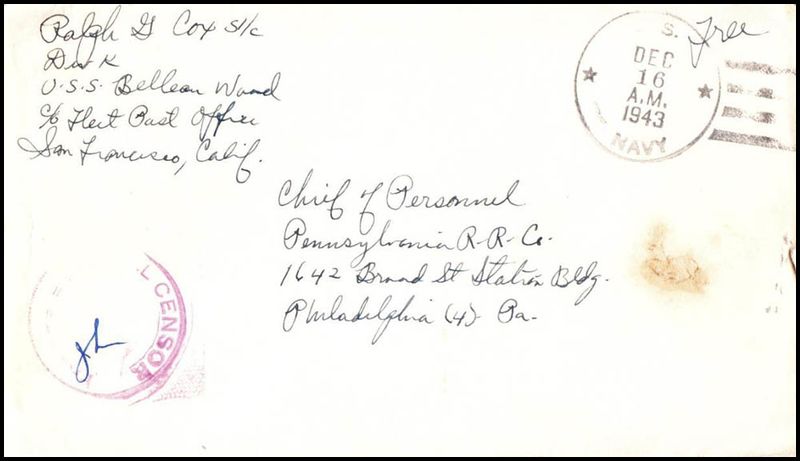 Ralph G Cox S1/c
Div K
U.S.S. Belleau Wood
c/o Fleet Post Office
San Francisco, Calif.
Free
S.
DEC
16
A.M.
1943
NAVY
Chief of Personnel
Pennsylvania R-R- Co.
1642 Broad St Station Bldg.
Philadelphia (4) Pa.
L CENSOR